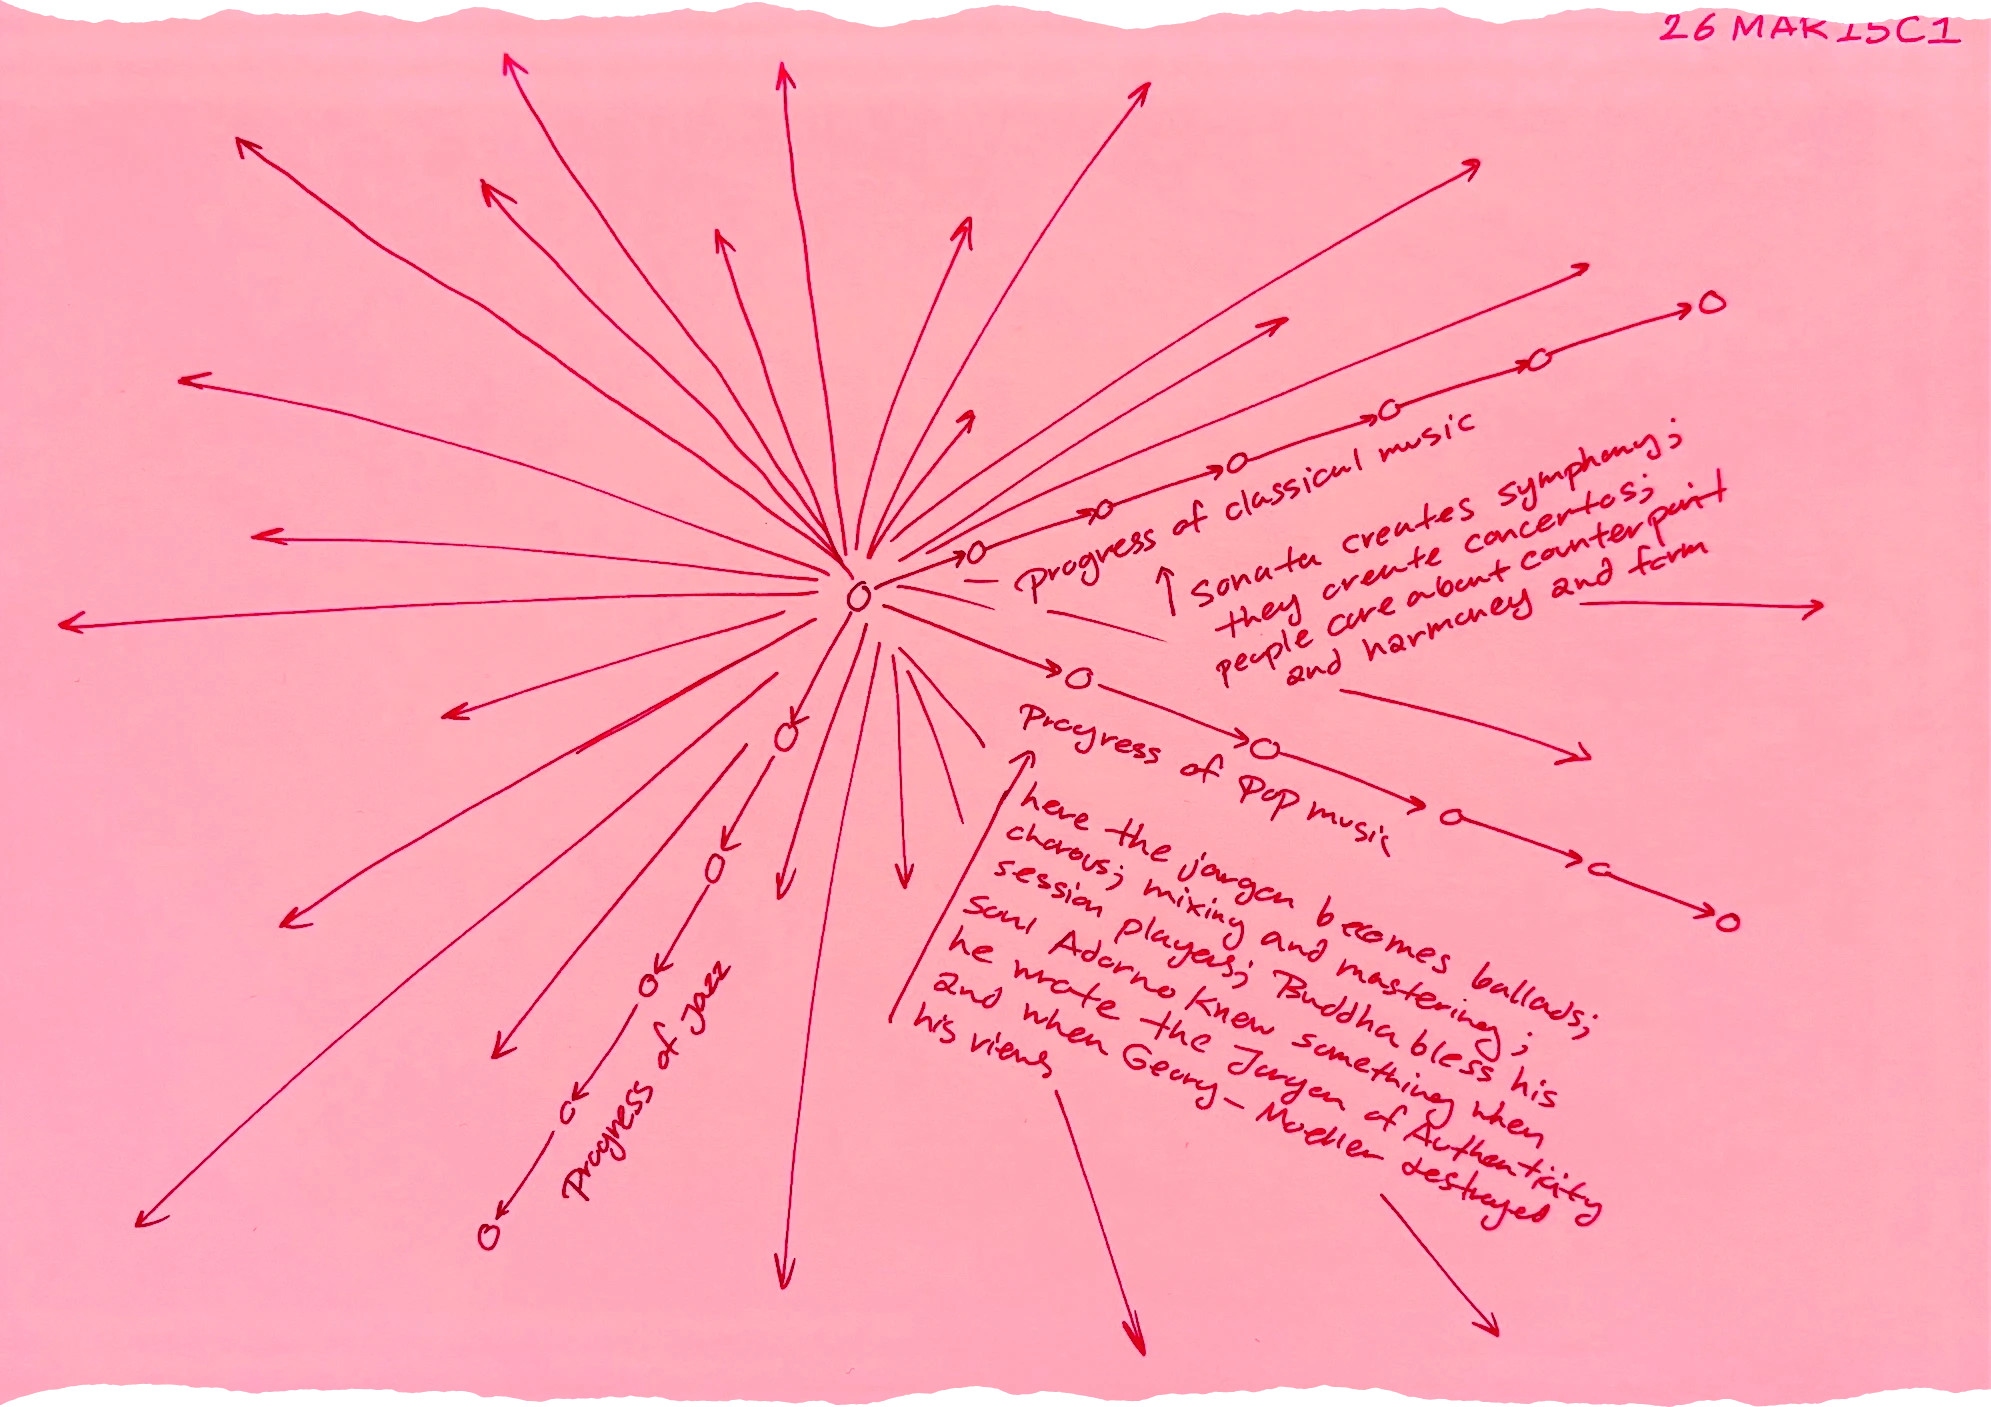 26 MAR 15C1
Progress of classical music
Sonata creates symphony;
they create concertos;
people care about counterpoint
and harmoney and form
Progress of Pop music
here the jargon becomes ballads;
chorous; mixing and mastering;
session players; Buddha bless his
soul Adorno knew something when
he wrote the Jargon of Authenticity
and when Geary-Moeller destroyed
his views
Progress of Jazz